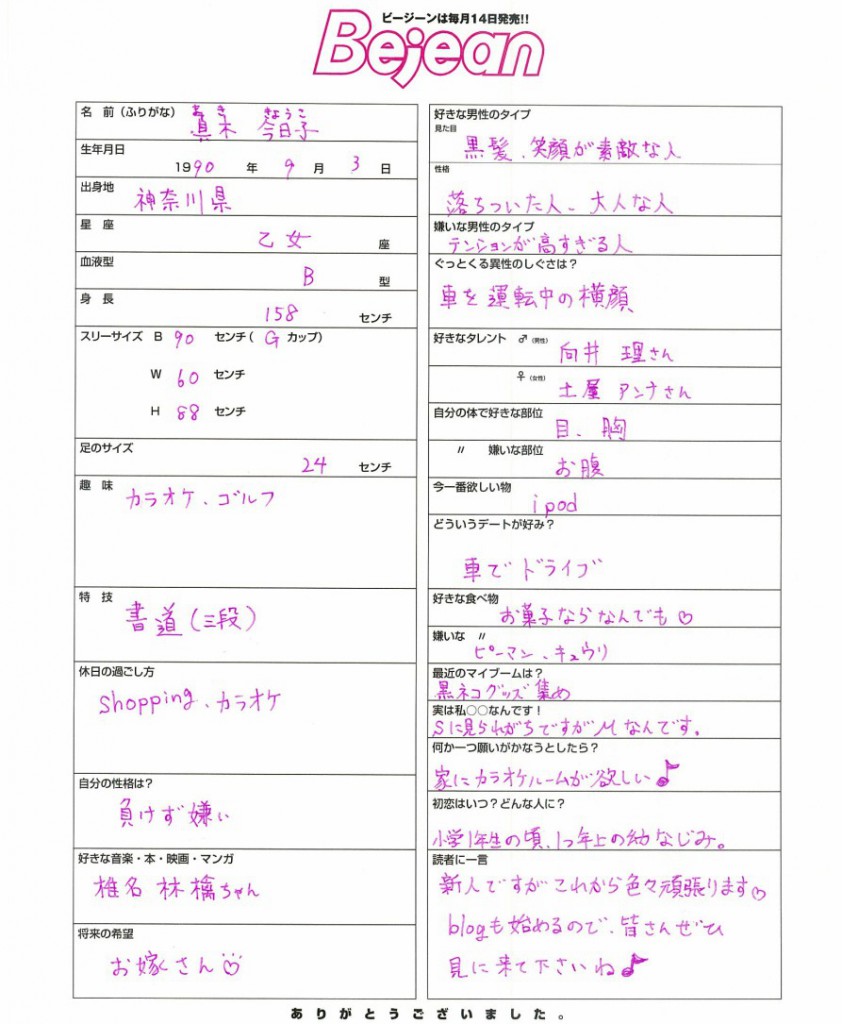 ビージーンは毎月14日発売!!
Bejean
名 前（ふりがな）
まき きょうこ
真木 今日子
生年月日
1990 年 9 月 3 日
出身地
神奈川県
星 座
乙女 座
血液型
B 型
身 長
158 センチ
スリーサイズ B 90 センチ( G カップ)
W 60 センチ
H 88 センチ
足のサイズ
24 センチ
趣 味
カラオケ、ゴルフ
特 技
書道(三段)
休日の過ごし方
shopping、カラオケ
自分の性格は？
負けず嫌い
好きな音楽・本・映画・マンガ
椎名 林檎ちゃん
将来の希望
お嫁さん
好きな男性のタイプ
見た目
黒髪、笑顔が素敵な人
性格
落ちついた人、大人な人
嫌いな男性のタイプ
テンションが高すぎる人
ぐっとくる異性のしぐさは？
車を運転中の横顔
好きなタレント ♂（男性）
向井 理さん
♀（女性）
土屋 アンナさん
自分の体で好きな部位
目、胸
〃 嫌いな部位
お腹
今一番欲しい物
ipod
どういうデートが好み？
車でドライブ
好きな食べ物
お菓子ならなんでも♡
嫌いな 〃
ピーマン、キュウリ
最近のマイブームは？
黒ネコグッズ集め
実は私○○なんです！
Sに見られがちですがMなんです。
何か一つ願いがかなうとしたら？
家にカラオケルームが欲しい♪
初恋はいつ？どんな人に？
小学1年生の頃、1つ年上の幼なじみ。
読者に一言
新人ですがこれから色々頑張ります♡
blogも始めるので、皆さんぜひ
見に来て下さいね♪
ありがとうございました。